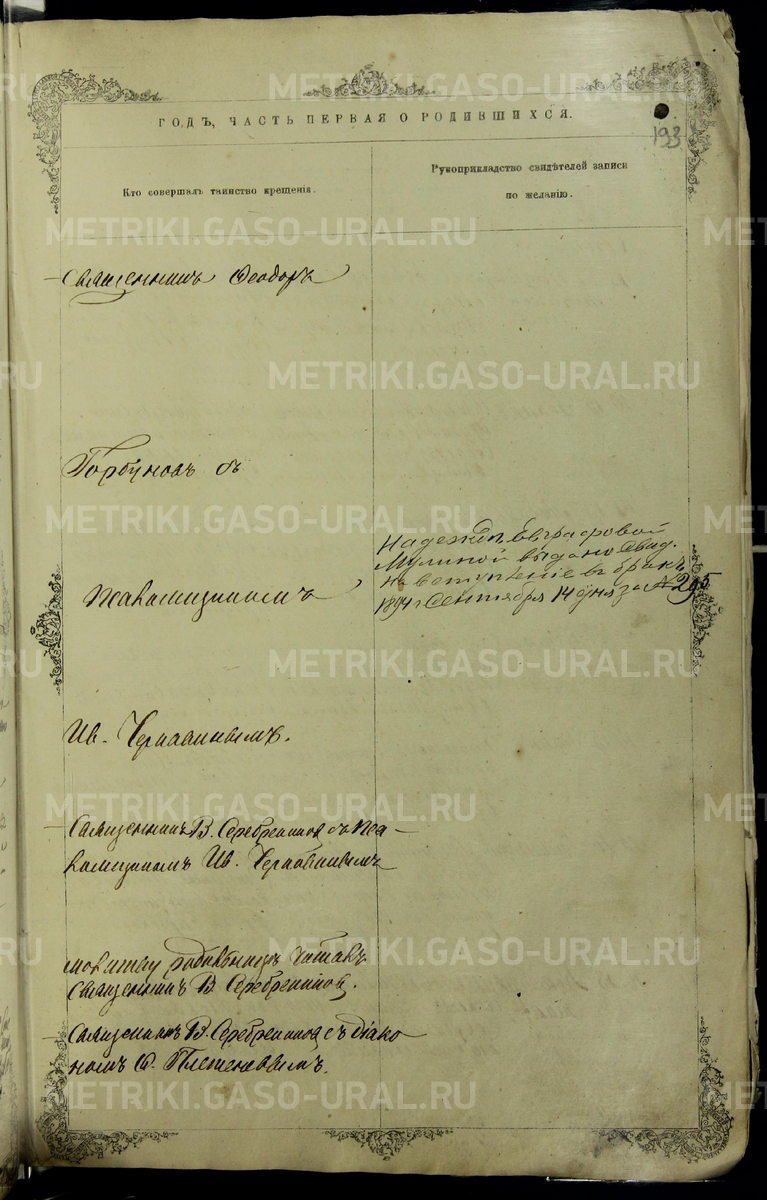 ГОДЪ, ЧАСТЬ ПЕРВАЯ О РОДИВШИХСЯ.
193
Кто совершалъ таинство крещенія.
Рукоприкладство свидѣтелей записи
по желанію.
Священникъ Ѳеодоръ
Горбуновъ съ
Надеждѣ Евграфовой
выдано свид.
на вступленіе въ бракъ
1894 г. Сентября 14 дня за № 295
Псаломщикомъ
Ив. Чернавинымъ.
Священникъ В. Серебренниковъ съ Пса-
ломщикомъ Ив. Чернавинымъ
молитву родильницѣ читалъ
Священникъ В. Серебренниковъ.
Священникъ В. Серебренниковъ съ діако-
номъ Ѳ. Плетеневымъ.
METRIKI.GASO-URAL.RU